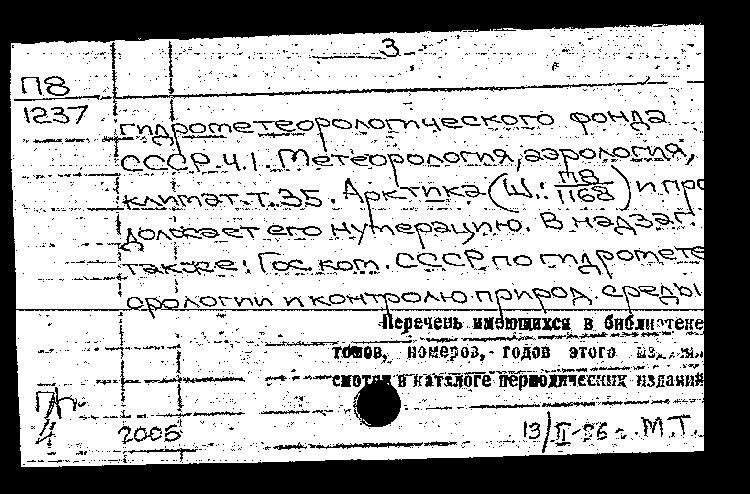 3
П8
1237
гидрометеорологического фонда
СССР. Ч.1. Метеорология, аэрология,
климат. т. 35. Арктика (Ш.: П8/1168) и про
должает его нумерацию. В надзаг.
также: Гос. ком. СССР по гидромете
орологии и контролю природ. среды
Перечень имеющихся в библиотеке
томов, номеров, годов этого
смотри в каталоге периодических изданий
4 2005 13/II-86 г. М.Т.